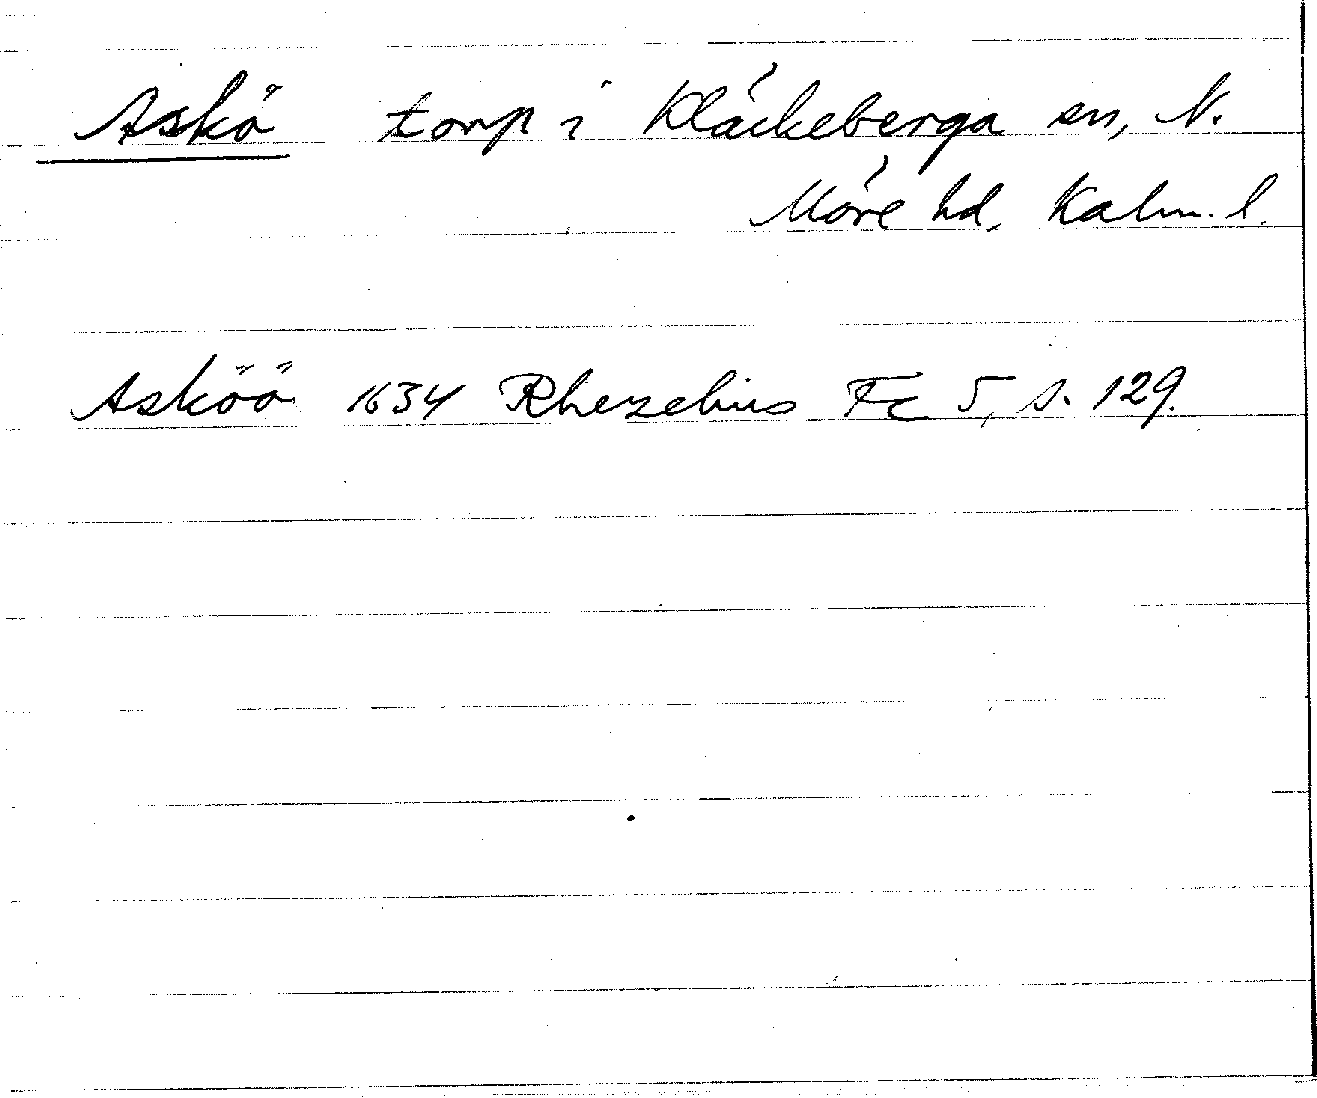 Askö torp i Kläckeberga sn, N.
Möre hd, Kalm. l.
Asköö 1634 Rhezelius Fc 5, s. 129.